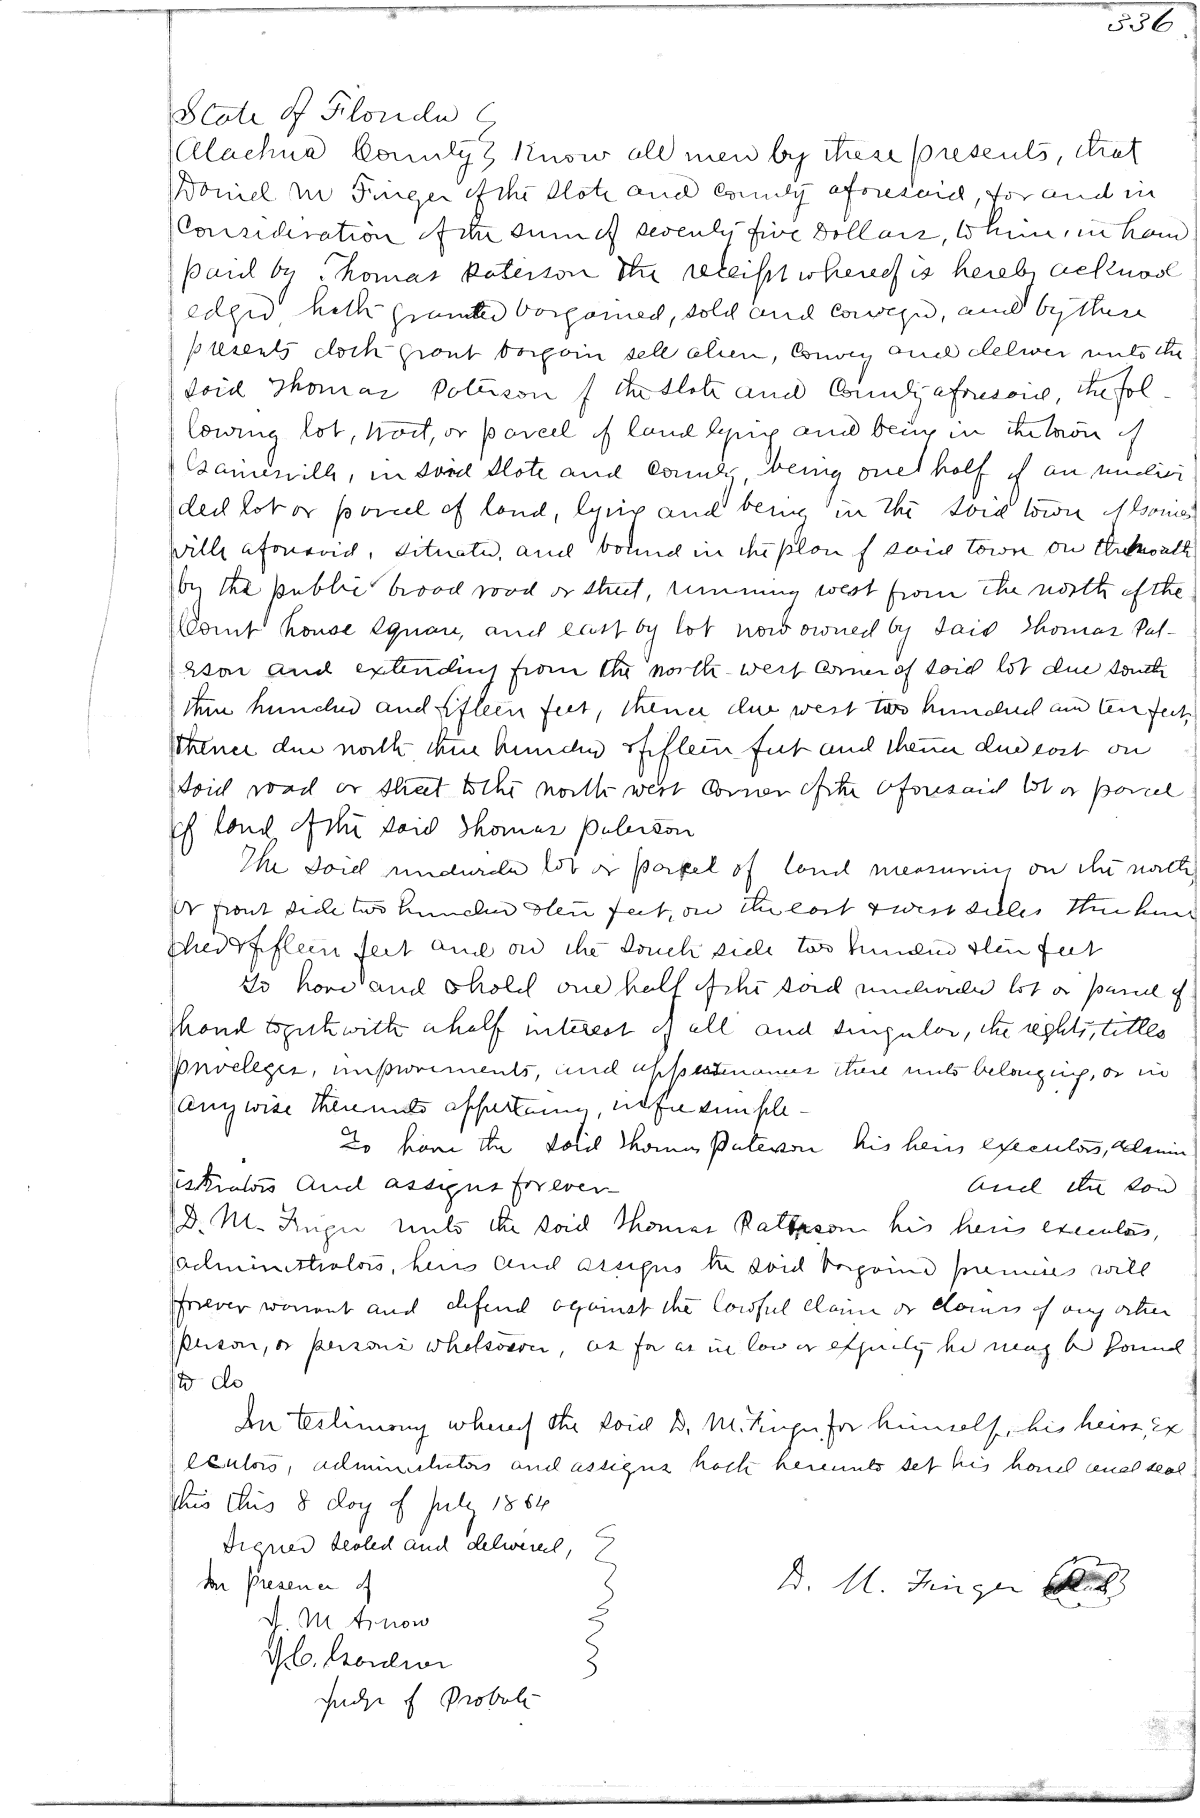 336
State of Florida }
Alachua County } Know all men by these presents, that
Daniel M Finger of the State and County aforesaid, for and in
Consideration of the sum of seventy five Dollars, to him in hand
paid by Thomas Paterson the receipt whereof is hereby acknowl
edged, hath granted bargained, sold and conveyed, and by these
presents doth grant bargain sell alien, Convey and deliver unto the
said Thomas Paterson of the State and County aforesaid, the fol-
lowing lot, tract, or parcel of land lying and being in the town of
Gainesville, in said State and County, being one half of an undivi
ded lot or parcel of land, lying and being in the said town of Gaines
ville aforesaid, situated, and bound in the plan of said town on the north
by the public broad road or street, running west from the north of the
Court house Square, and east by lot now owned by said Thomas Pat-
erson and extending from the north-west corner of said lot due south
three hundred and fifteen feet, thence due west two hundred and ten feet,
thence due north three hundred & fifteen feet and thence due east on
said road or street to the north west corner of the aforesaid lot or parcel
of land of the said Thomas Paterson
The said undivided lot or parcel of land measuring on the north,
or front side two hundred & ten feet, on the east & west sides three hun
dred & fifteen feet and on the south side two hundred & ten feet
To have and to hold one half of the said undivided lot or parcel of
land together with a half interest of all and singular, the rights, titles
priveleges, improvements, and appurtenances there unto belonging, or in
any wise thereunto appertaining, in fee simple -
To have the said Thomas Paterson his heirs executors, admin
istrators and assigns forever - and the said
D. M. Finger unto the said Thomas Paterson his heirs executors,
administrators, heirs and assigns the said bargained premises will
forever warrant and defend against the lawful claim or claims of any other
person, or persons whatsoever, as far as in law or equity he may be bound
to do
In testimony whereof the said D. M. Finger for himself, his heirs, ex
ecutors, administrators and assigns hath hereunto set his hand and seal
this this 8 day of July 1864
Signed sealed and delivered, }
In presence of
D. M. Finger Seal
J. M Arnow
J. C. Gardner
Judge of Probate